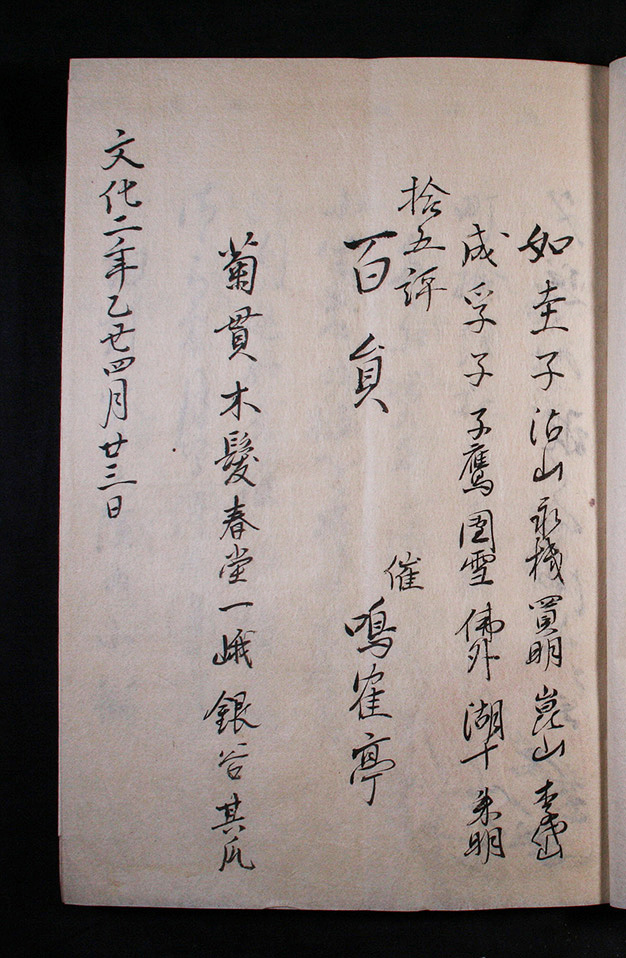 如圭子 沾山 永機 買明 崑山 李岱
成孚子 子鷹 圄雪 佛外 湖十 朱明
拾五評
百員
催
鳴隺亭
菊貫 木髪 春堂 一峨 銀谷 其爪
文化二年乙丑四月廿三日